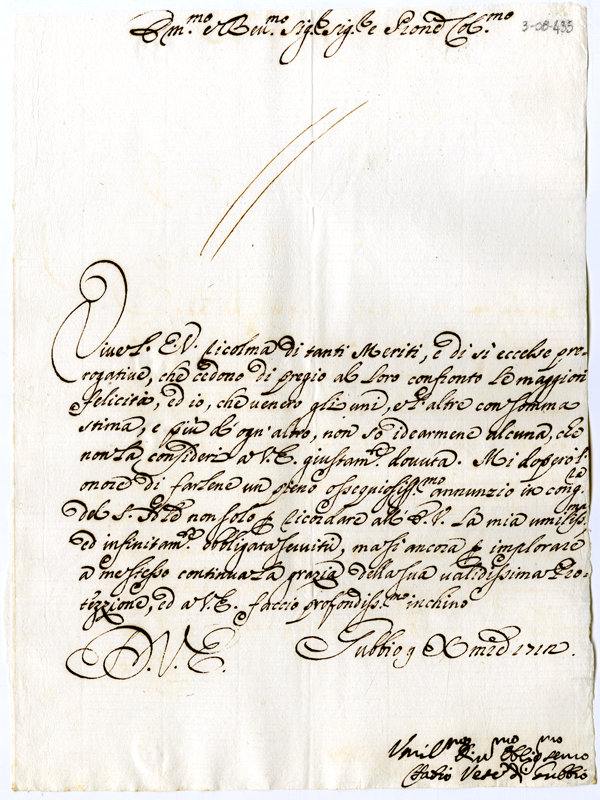 Em.mo e Reu.mo Sig.r Sig.r e Pron Col.mo
3-08-435
Viue l'E.V. ricolma di tanti Meriti, e di si eccelse pre-
rogatiue, che cedono di pregio al loro confronto le maggiori
felicità, ed io, che venero gli uni, e l'altre con somma
stima, e più d'ogn'altro, non so idearmene alcuna, che
non la consideri a V.E. giustam.te douuta. Mi do però l'
onore di farlene un pieno ossequiosiss.mo annunzio in cong.ra
del S. non solo p ricordare all'E.V. la mia umiliss.ma
ed infinitam.te obbligata seruitù, ma si ancora p implorare
a me stesso continuata grazia della sua validissima Pro-
tezzione, ed a V.E. faccio profondiss.mo inchino
D.V.E. Gubbio 9 Xmre 1712.
Vmil.mo Diu.mo Obblig.mo seruo
Fabio Vesc.o di Gubbio